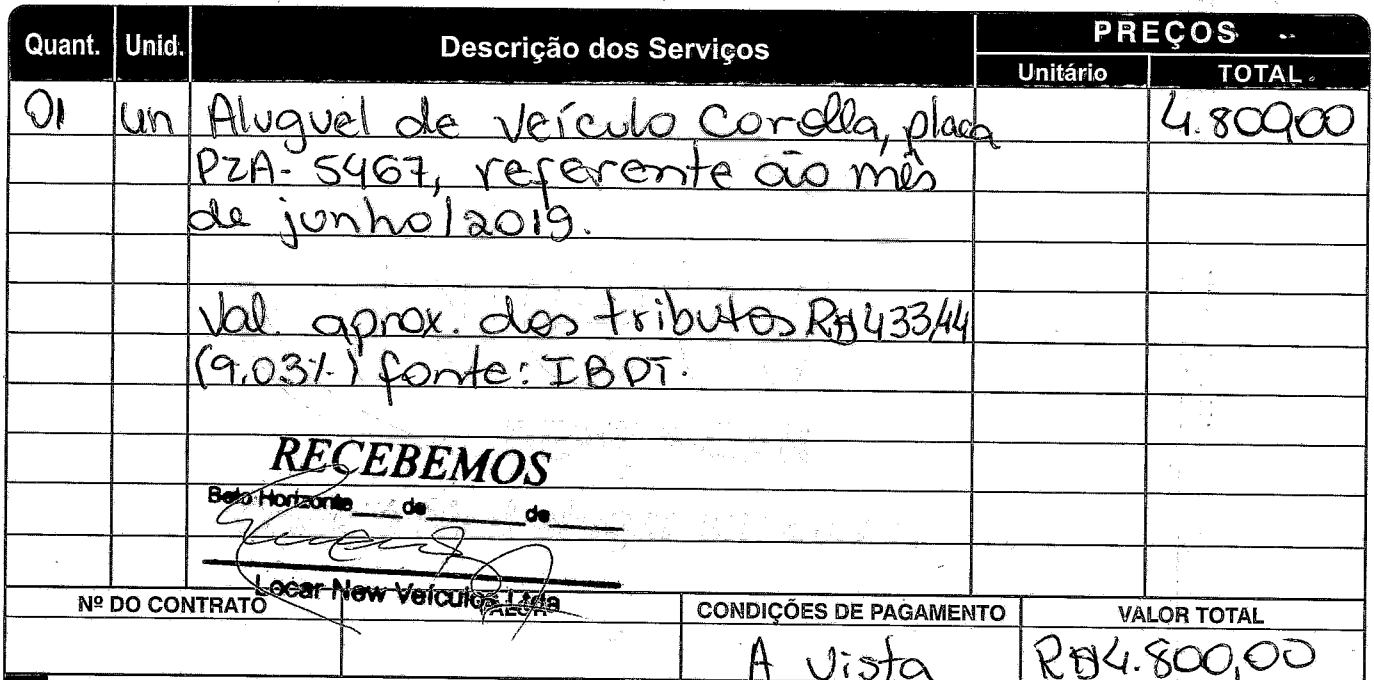 Quant. Unid. Descrição dos Serviços PREÇOS
Unitário TOTAL
01 un Aluguel de veículo Corolla, placa 4.800,00
PZA-5467, referente ao mês
de junho/2019.
Val. aprox. dos tributos R$433,44
(9,03%) fonte: IBPT.
RECEBEMOS
Belo Horizonte____de________de______
Locar New Veículos Ltda
Nº DO CONTRATO CONDIÇÕES DE PAGAMENTO VALOR TOTAL
A vista R$4.800,00